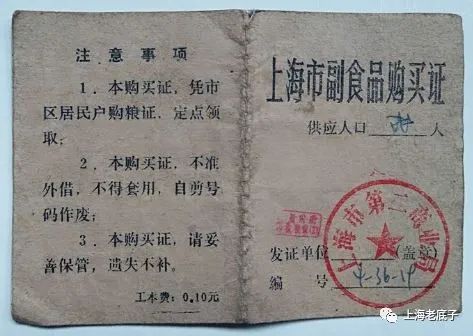 注意事项
1．本购买证，凭市
区居民户购粮证，定点领
取；
2．本购买证，不准
外借，不得套用，自剪号
码作废；
3．本购买证，请妥
善保管，遗失不补。
工本费：0.10元
上海市副食品购买证
供应人口 人
上海市第二商业局
发证单位 （盖章）
编号 4-36-19
上海老底子